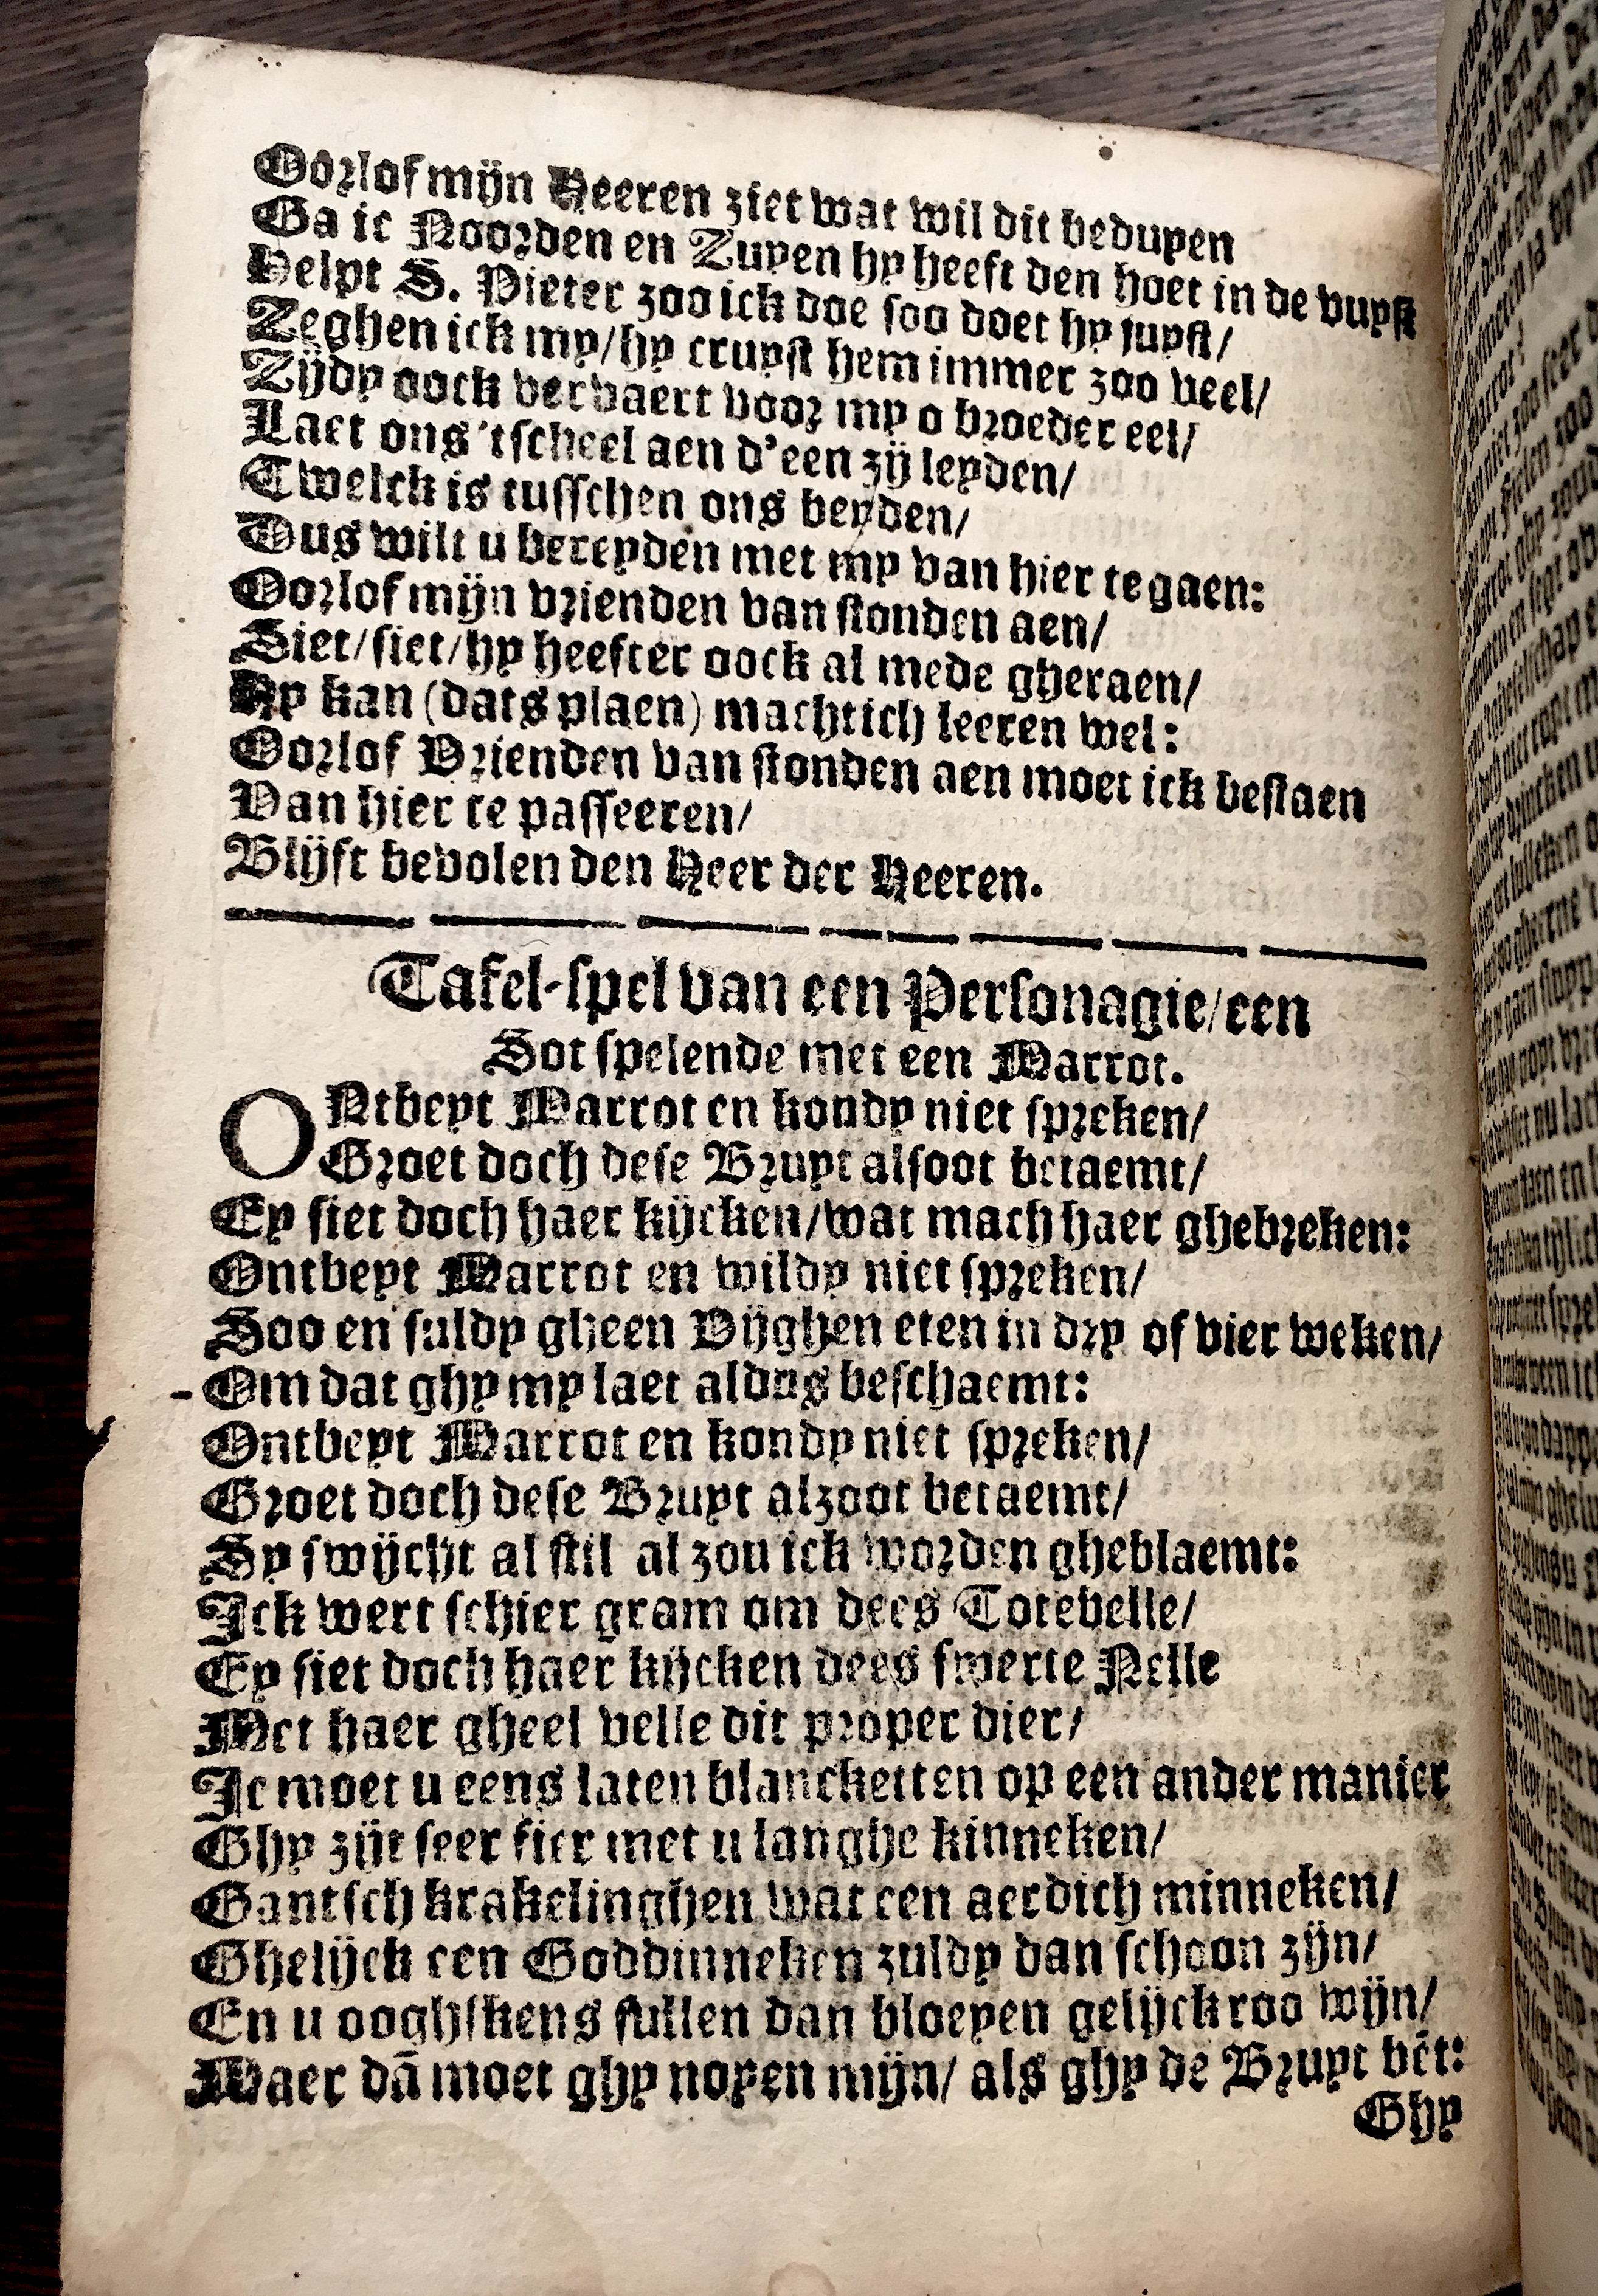 Oorlof mijn Heeren ziet wat wil dit beduyen
Ga ic Noorden en Zuyen hy heeft den hoet in de vuyst
Helpt S. Pieter zoo ick doe soo doet hy juyst/
Zeghen ick my/hy cruyst hem immer zoo veel/
Zijdy oock vervaert voor my o broeder eel/
Laet ons 'tscheel aen d'een zij leyden/
Twelck is tusschen ons beyden/
Dus wilt u bereyden met my van hier te gaen:
Oorlof mijn vrienden van stonden aen/
Siet/siet/hy heefter oock al mede gheraen/
Hy kan (dats plaen) machtich leeren wel:
Oorlof Vrienden van stonden aen moet ick bestaen
Van hier te passeeren/
Blijft bevolen den Heer der Heeren.
Tafel-spel van een Personagie/een
Sot spelende met een Marrot.
ONtbeyt Marrot en kondy niet spreken/
Groet doch dese Bruyt alsoot betaemt/
Ey siet doch haer kijcken/wat mach haer ghebreken:
Ontbeyt Marrot en wildy niet spreken/
Soo en suldy gheen Vijghen eten in dry of vier weken/
Om dat ghy my laet aldus beschaemt:
Ontbeyt Marrot en kondy niet spreken/
Groet doch dese Bruyt alzoot betaemt/
Sy swijcht al stil al zou ick worden gheblaemt:
Ick wert schier gram om dees Totebelle/
Ey siet doch haer kijcken dees swerte Nelle
Met haer gheel velle dit proper dier/
Ic moet u eens laten blancketten op een ander manier
Ghy zijt seer fier met u langhe kinneken/
Gantsch krakelinghen wat een aerdich minneken/
Ghelijck een Goddinneken zuldy dan schoon zijn/
En u ooghskens sullen dan bloeyen gelijck roo wijn/
Maer dā moet ghy noyen mijn/ als ghy de Bruyt bēt:
Ghy